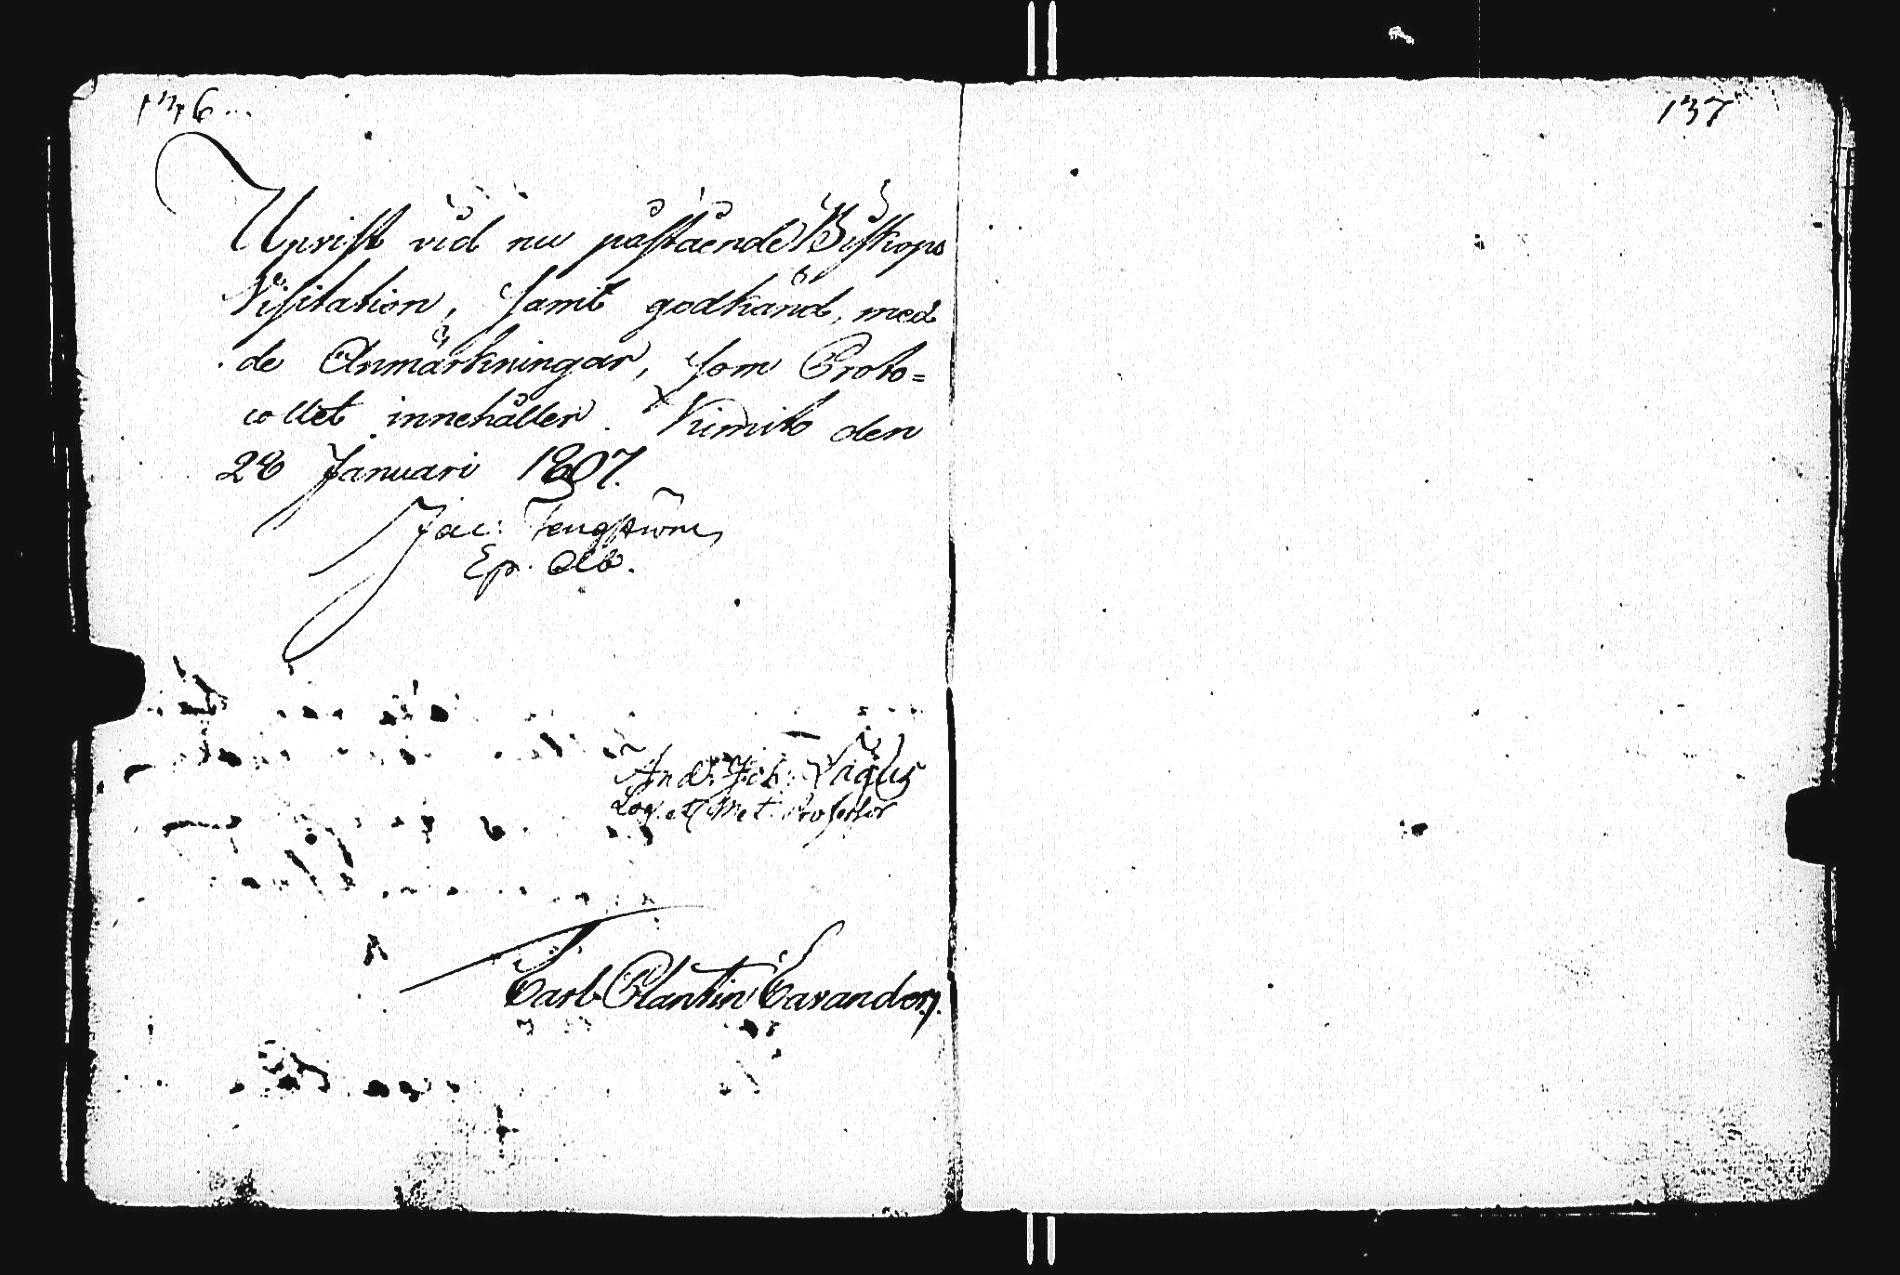 136
Upvist vid nu påstående Biskops
Visitation, samt godkänd, med
de Anmärkningar, som Proto=
collet innehåller. Kimito den
28 Januari 1807.
Jac: Tengström
Ep. Ab.
And. Joh: Lagus
Log. et Met. Professor
Carl Plantin Cavander.
137